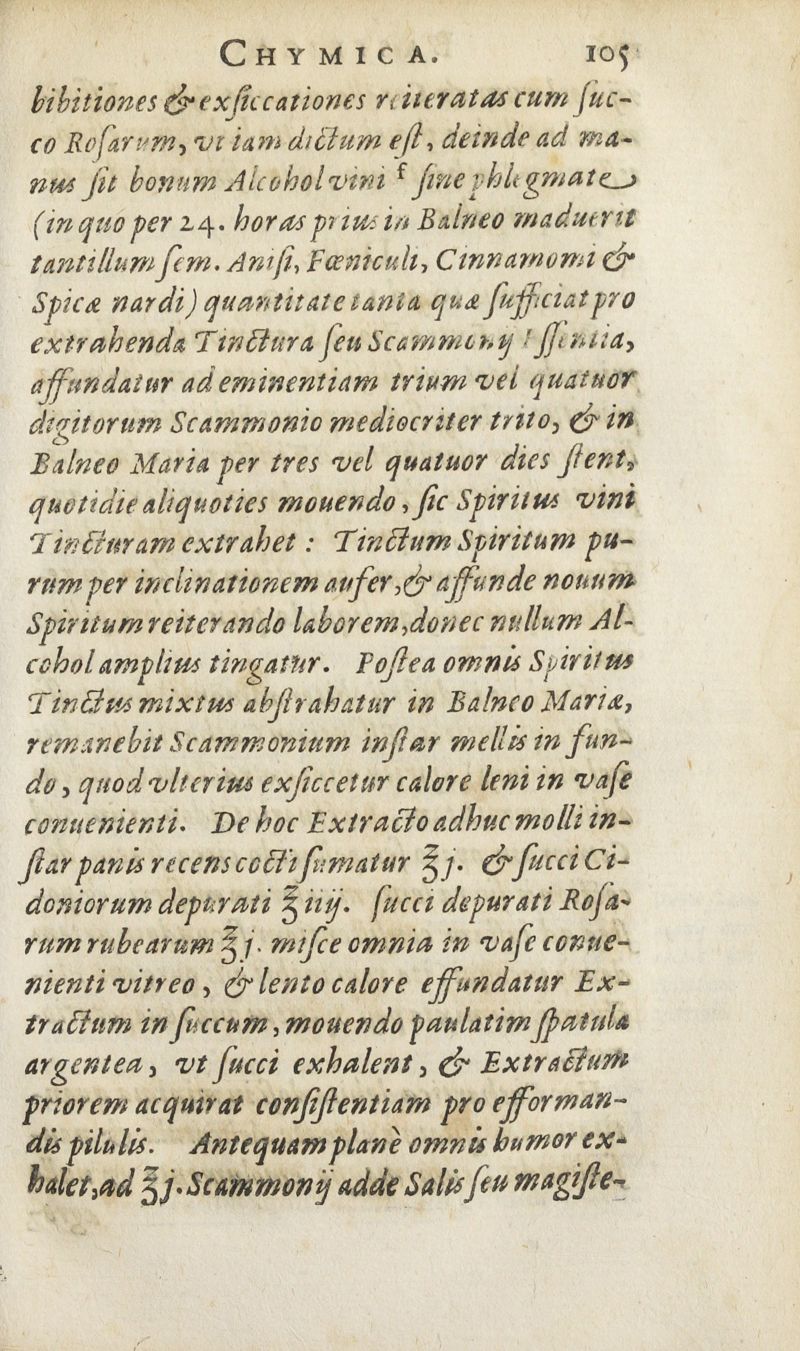 CHYMICA. 105
bibitiones & exſiccationes reiteratas cum ſuc-
co Roſarum, vt iam dictum eſt, deinde ad ma-
nus ſit bonum Alcohol vini f ſine phlegmate
(in quo per 24. horas prius in Balneo maduerit
tantillum ſem. Aniſi, Fœniculi, Cinnamomi &
Spicæ nardi) quantitate tanta quæ ſufficiat pro
extrahenda Tinctura ſeu Scammonij Eſſentia,
affundatur ad eminentiam trium vel quatuor
digitorum Scammonio mediocriter trito, & in
Balneo Maria per tres vel quatuor dies ſtent,
quotidie aliquoties mouendo, ſic Spiritus vini
Tincturam extrahet: Tinctum Spiritum pu-
rum per inclinationem aufer, & affunde nouum
Spiritum reiterando laborem, donec nullum Al-
cohol amplius tingatur. Poſtea omnis Spiritus
Tinctus mixtus abſtrahatur in Balneo Mariæ,
remanebit Scammonium inſtar mellis in fun-
do, quod vlterius exſiccetur calore leni in vaſe
conuenienti. De hoc Extracto adhuc molli in-
ſtar panis recens cocti ſumatur ℥j. & ſucci Ci-
doniorum depurati ℥iiij. ſucci depurati Roſa-
rum rubearum ℥j. miſce omnia in vaſe conue-
nienti vitreo, & lento calore effundatur Ex-
tractum in ſuccum, mouendo paulatim ſpatula
argentea, vt ſucci exhalent, & Extractum
priorem acquirat conſiſtentiam pro efforman-
dis pilulis. Antequam planè omnis humor ex-
halet, ad ℥j. Scammonij adde Salis ſeu magiſte-